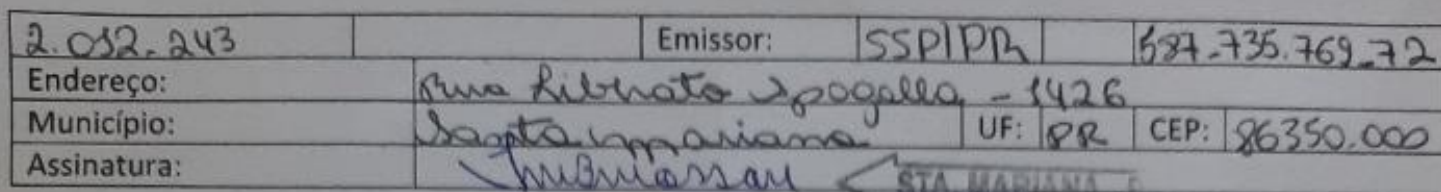 2.032.243 Emissor: SSP/PR 587.735.769-72
Endereço: Rua Liberato Spogalla - 1426
Município: Santa mariana UF: PR CEP: 86350.000
Assinatura:
STA MARIANA